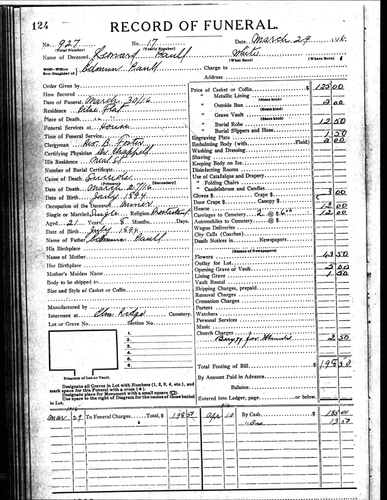 124
RECORD OF FUNERAL.
No. 927 No. 17 Date March 29 1916
(Total Number) (Yearly Number)
Name of Deceased Faull White
(What Race) (Where Born)
Charge to
Address
Order Given by
How Secured
Date of Funeral March 30/16
Residence Flat
Place of Death " "
Funeral Services at House
Time
Clergyman Rev. B. Foster
Certifying Physician Dr.
His Residence Main St
Number of Burial Certificate
Cause of Death Suicide
(Primary) (Secondary)
Date of Death March 27/16
Date of Birth July 1894
Occupation of the Deceased Miner
Single or Married Single Religion Protestant
Aged 21 Years 8 Months Days
Date of Birth July 1894
Name of Father Faull
His Birthplace
Name of Mother
Her Birthplace
Mother's Maiden Name
Body to be shipped to
Size and Style of Casket or Coffin
Manufactured by
Interment at Elm Ridge Cemetery
Lot or Grave No. Section No.
Diagram of Lot or Vault
Designate all Graves in Lot with Numbers (1, 2, 3, 4, etc.), and
mark space for this Funeral with a cross
Designate place for Monument with a small square
Use space to right of Diagram for names of those buried
in Lot.
Price of Casket or Coffin $ 125 00
" Metallic Lining
" Outside Box 5 00
" Grave Vault
" Burial Robe 12 50
" Burial Slippers and Hose 1 50
Engraving Plate
Embalming Body (with Fluid)
Washing and Dressing
Shaving
Keeping Body on Ice
Disinfecting Rooms
Use of Catafalque and Drapery
" Folding Chairs
" Candelabrum and Candles
Gloves $ Crape $ 3 00
Door Crape $ Canopy $
Hearse 12 00
Carriages to Cemetery 2 @ $6.00 12 00
Automobiles to Cemetery @ $
Wagon Deliveries
City Calls (Coaches)
Death Notices in Newspapers
(Names of Newspapers)
Flowers
Outlay for Lot
Opening Grave or Vault 5 00
Lining Grave 1 50
Vault Rental
Shipping Charges, prepaid
Removal Charges
Cremation Charges
Porters
Watchers
Personal Services
Music
Church Charges
Buggy for Minister 2 50
Total Footing of Bill $ 198 50
By Amount Paid in Advance
Balance
Entered into Ledger, page or below.
1916
Mar 29 To Funeral Charges Total, $ 198 50 Apr By Cash 185 00
13 50